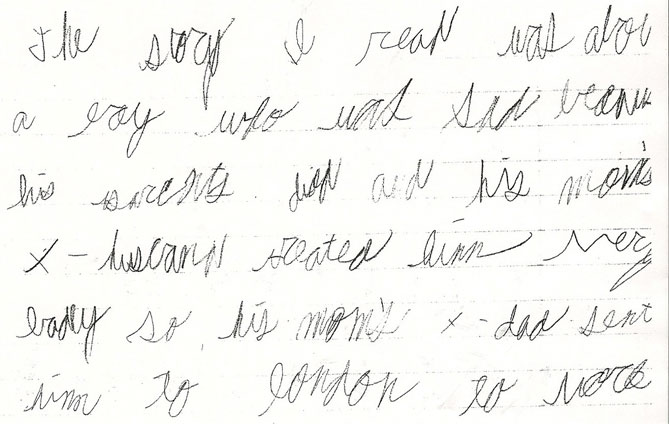 The story I read was abou
a boy who was sad becaus
his parents died and his mom's
x-husband treated him very
badly so his mom's x-dad sent
him to london to work